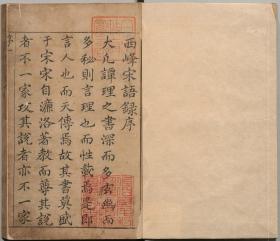 西峰宋語録序
大凡譚理之書深而多玄幽而
多秘則言理也而性載焉是即
言人也而天傳焉故其書莫盛
于宋宋自濂洛著教而尊其說
者不一家攻其說者亦不一家
序
一